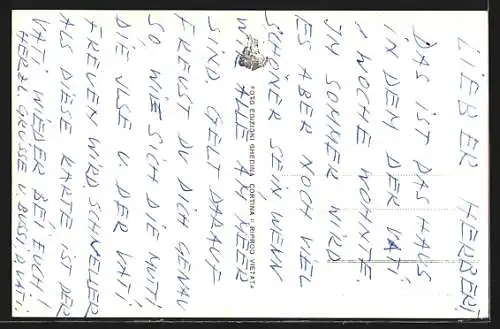 LIEBER HERBERT
DAS IST DAS HAUS
IN DEM DER VATI
1 WOCHE WOHNTE.
IM SOMMER WIRD
ES ABER NOCH VIEL
SCHÖNER SEIN WENN
WIR ALLE AM MEER
SIND GELT DARAUF
FREUST DU DICH GENAU
SO WIE SICH DIE MUTI
DIE ILSE U. DER VATI
FREUEN WIRD. SCHNELLER
ALS DIESE KARTE IST DER
VATI WIEDER BEI EUCH!
HERZL. GRÜSSE U. BUSSI, D. VATI.
FOTO EDIZIONI GHEDINA - CORTINA RIPROD. VIETATA